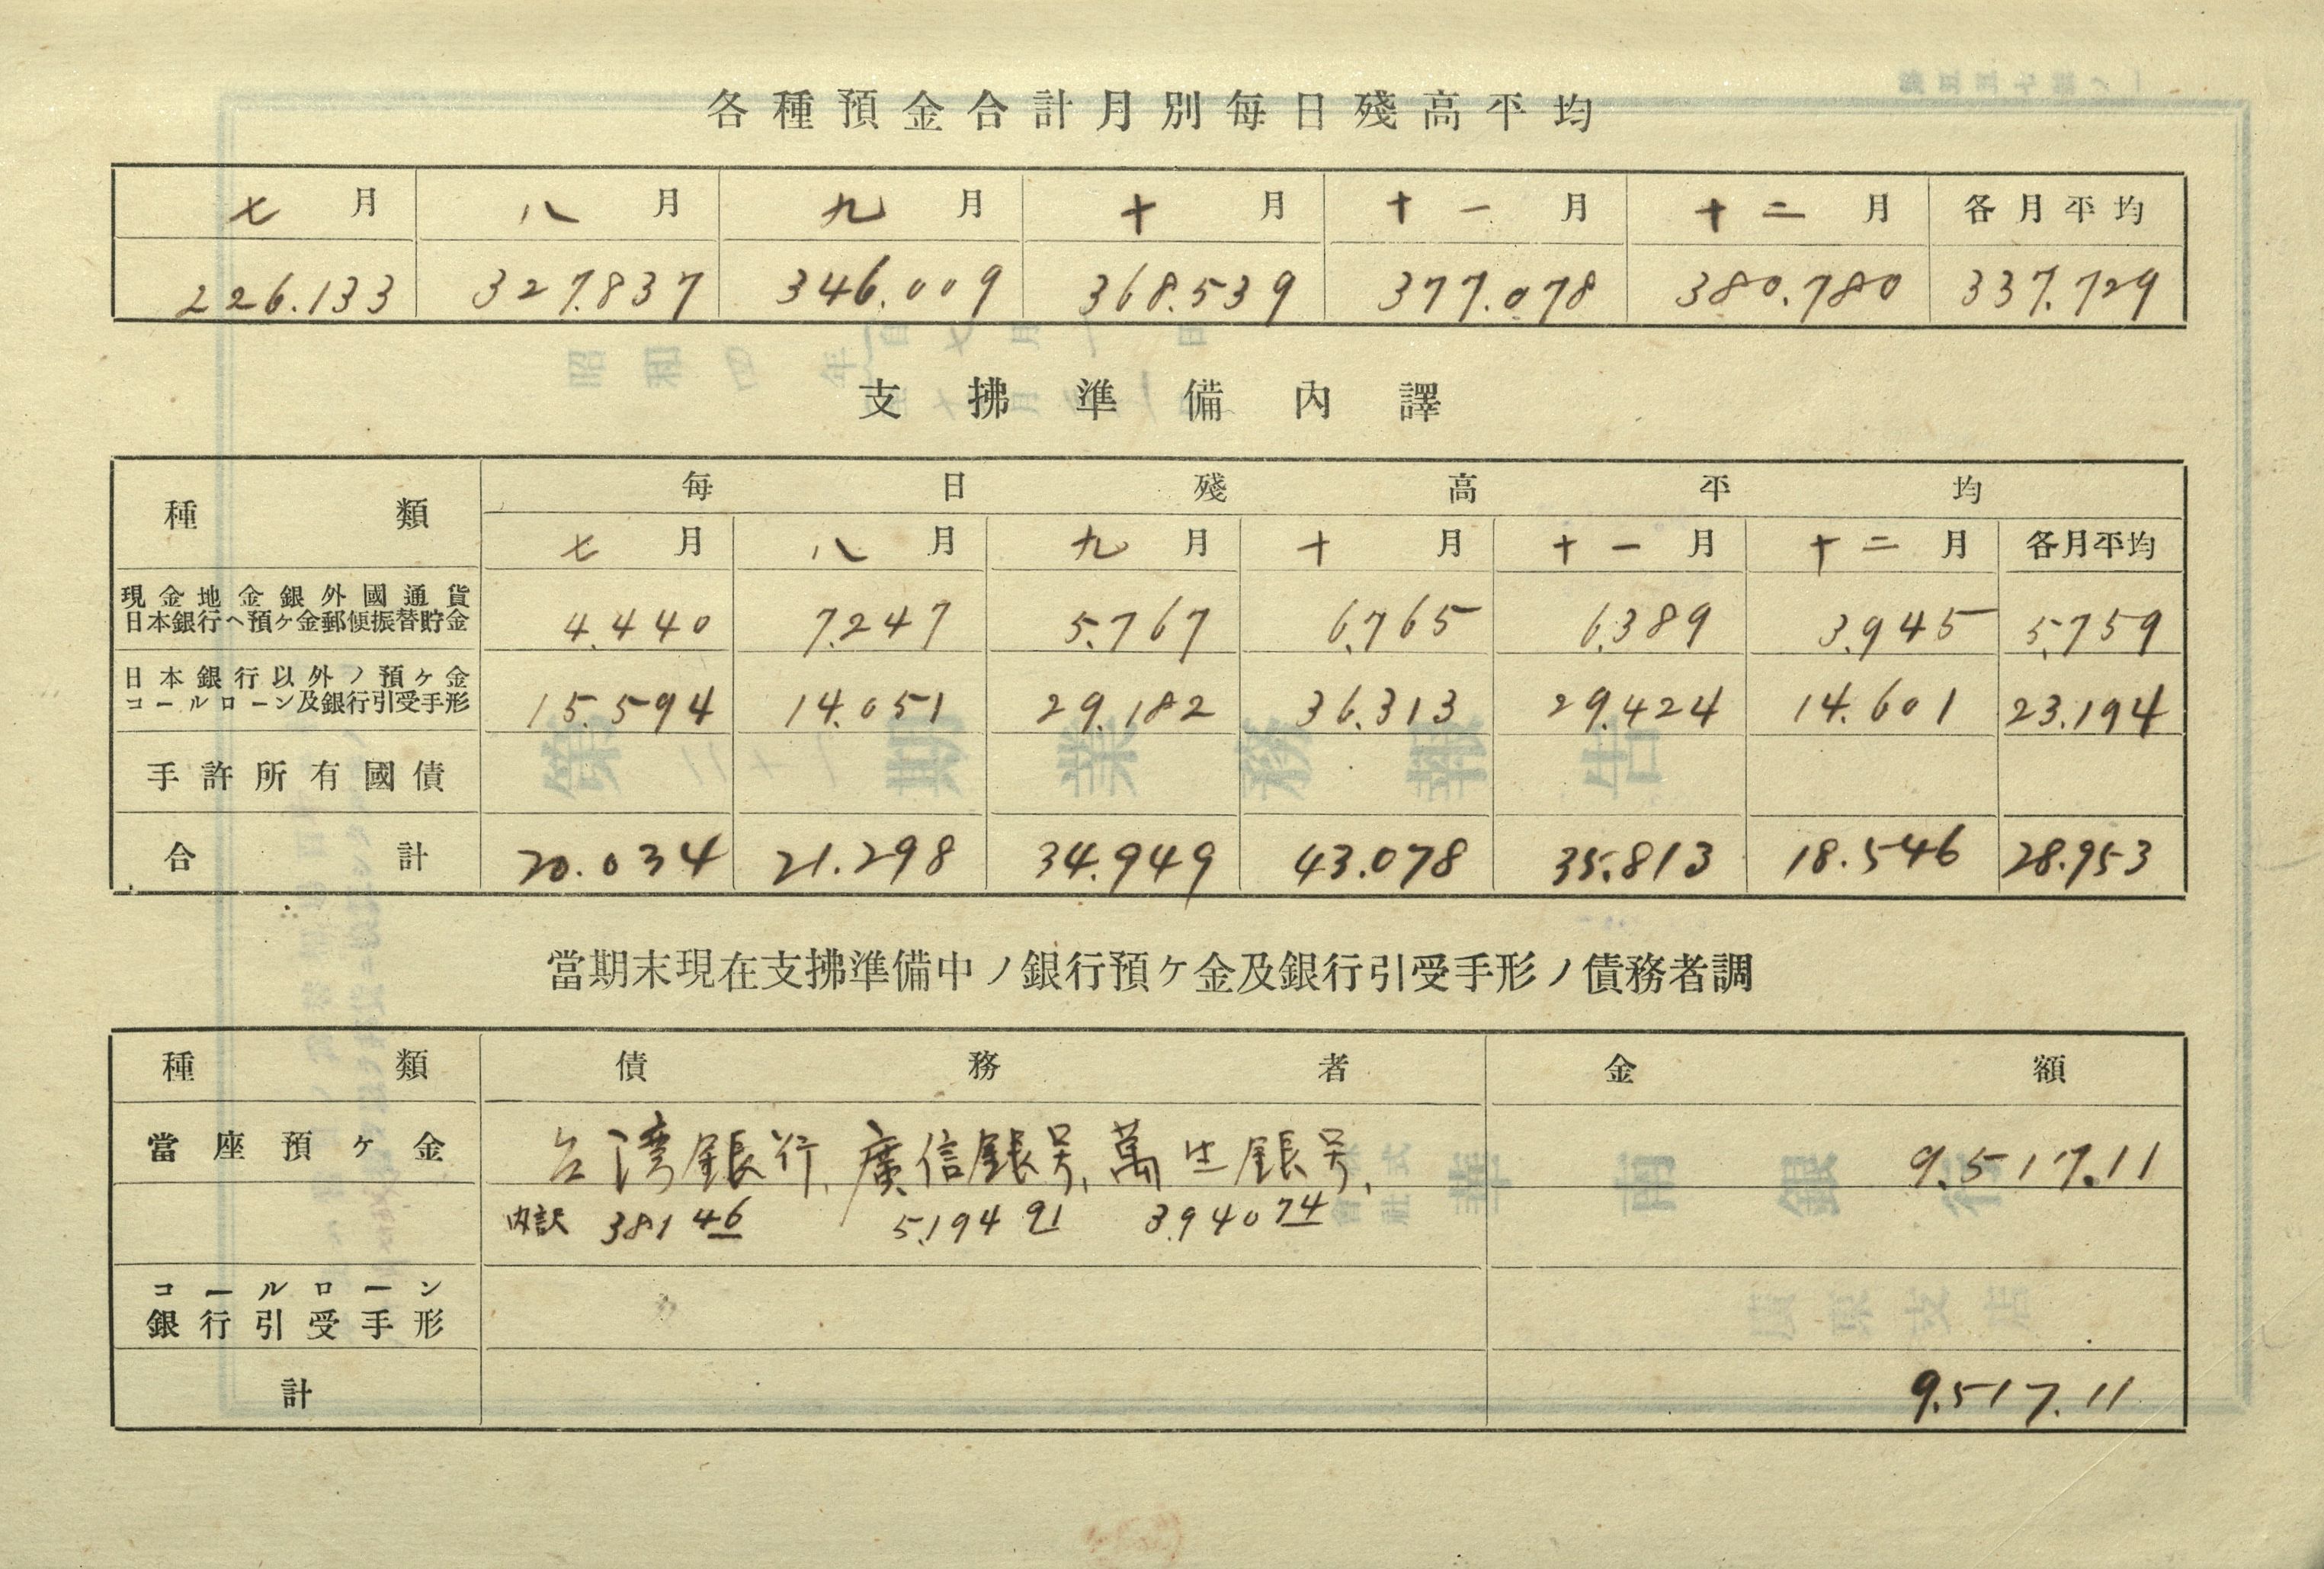 各種預金合計月別每日殘高平均
七月 八月 九月 十月 十一月 十二月 各月平均
226.133 327.837 346.009 368.539 377.078 380.780 337.729
支拂準備內譯
種類 每日殘高平均
七月 八月 九月 十月 十一月 十二月 各月平均
現金地金銀外國通貨
日本銀行ヘ預ケ金郵便振替貯金 4.440 7.247 5.767 6.765 6.389 3.945 5.759
日本銀行以外ノ預ケ金
コールローン及銀行引受手形 15.594 14.051 29.182 36.313 29.424 14.601 23.194
手許所有國債
合計 20.034 21.298 34.949 43.078 35.813 18.546 28.953
當期末現在支拂準備中ノ銀行預ケ金及銀行引受手形ノ債務者調
種類 債務者 金額
當座預ケ金 台湾銀行、廣信銀号、萬生銀号、 9.517.11
内訳 381 46 5.194 91 3.940 74
コールローン
銀行引受手形
計 9.517.11